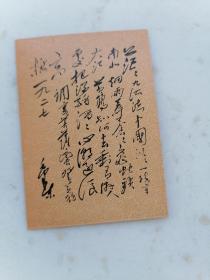 茫茫九派流中国沉沉一线穿
南北烟雨莽苍苍龟蛇锁
大江黄鹤知何去剩有游
人处把酒酹滔滔心潮逐浪
高 调寄菩萨蛮登黄鹤
楼一九二七
毛泽东